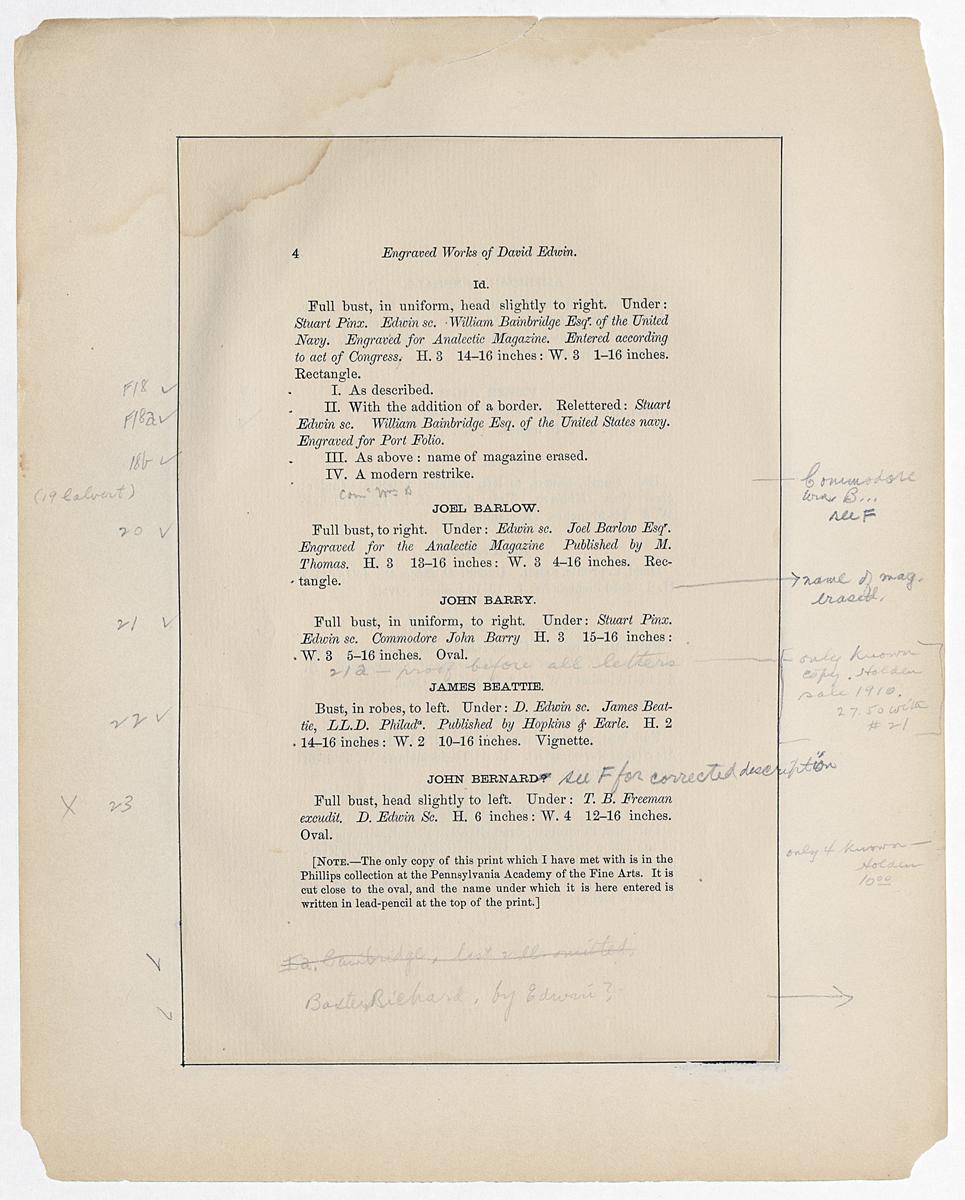 4 Engraved Works of David Edwin.
Id.
Full bust, in uniform, head slightly to right. Under:
Stuart Pinx. Edwin sc. William Bainbridge Esqr. of the United
Navy. Engraved for Analectic Magazine. Entered according
to act of Congress. H. 3 14–16 inches: W. 3 1–16 inches.
Rectangle.
F18 ✓
I. As described.
F18a ✓
II. With the addition of a border. Relettered: Stuart
Edwin sc. William Bainbridge Esq. of the United States navy.
Engraved for Port Folio.
18b ✓
III. As above: name of magazine erased.
IV. A modern restrike.
Commodore
Wm B...
see F
(19 Calvert)
Com. Wm B
JOEL BARLOW.
20 ✓
Full bust, to right. Under: Edwin sc. Joel Barlow Esqr.
Engraved for the Analectic Magazine Published by M.
Thomas. H. 3 13–16 inches: W. 3 4–16 inches. Rec-
tangle.
name of mag.
erased.
JOHN BARRY.
21 ✓
Full bust, in uniform, to right. Under: Stuart Pinx.
Edwin sc. Commodore John Barry H. 3 15–16 inches:
W. 3 5–16 inches. Oval.
21a — proof before all letters
only known
copy. Holden
sale 1910.
27.50 with
# 21
JAMES BEATTIE.
22 ✓
Bust, in robes, to left. Under: D. Edwin sc. James Beat-
tie, LL.D. Philada. Published by Hopkins & Earle. H. 2
14–16 inches: W. 2 10–16 inches. Vignette.
JOHN BERNARD? see F for corrected description
X 23
Full bust, head slightly to left. Under: T. B. Freeman
excudit. D. Edwin Sc. H. 6 inches: W. 4 12–16 inches.
Oval.
only 4 known —
Holden
10.00
[NOTE.—The only copy of this print which I have met with is in the
Phillips collection at the Pennsylvania Academy of the Fine Arts. It is
cut close to the oval, and the name under which it is here entered is
written in lead-pencil at the top of the print.]
Bainbridge, omitted.
Baxter, Richard, by Edwin?